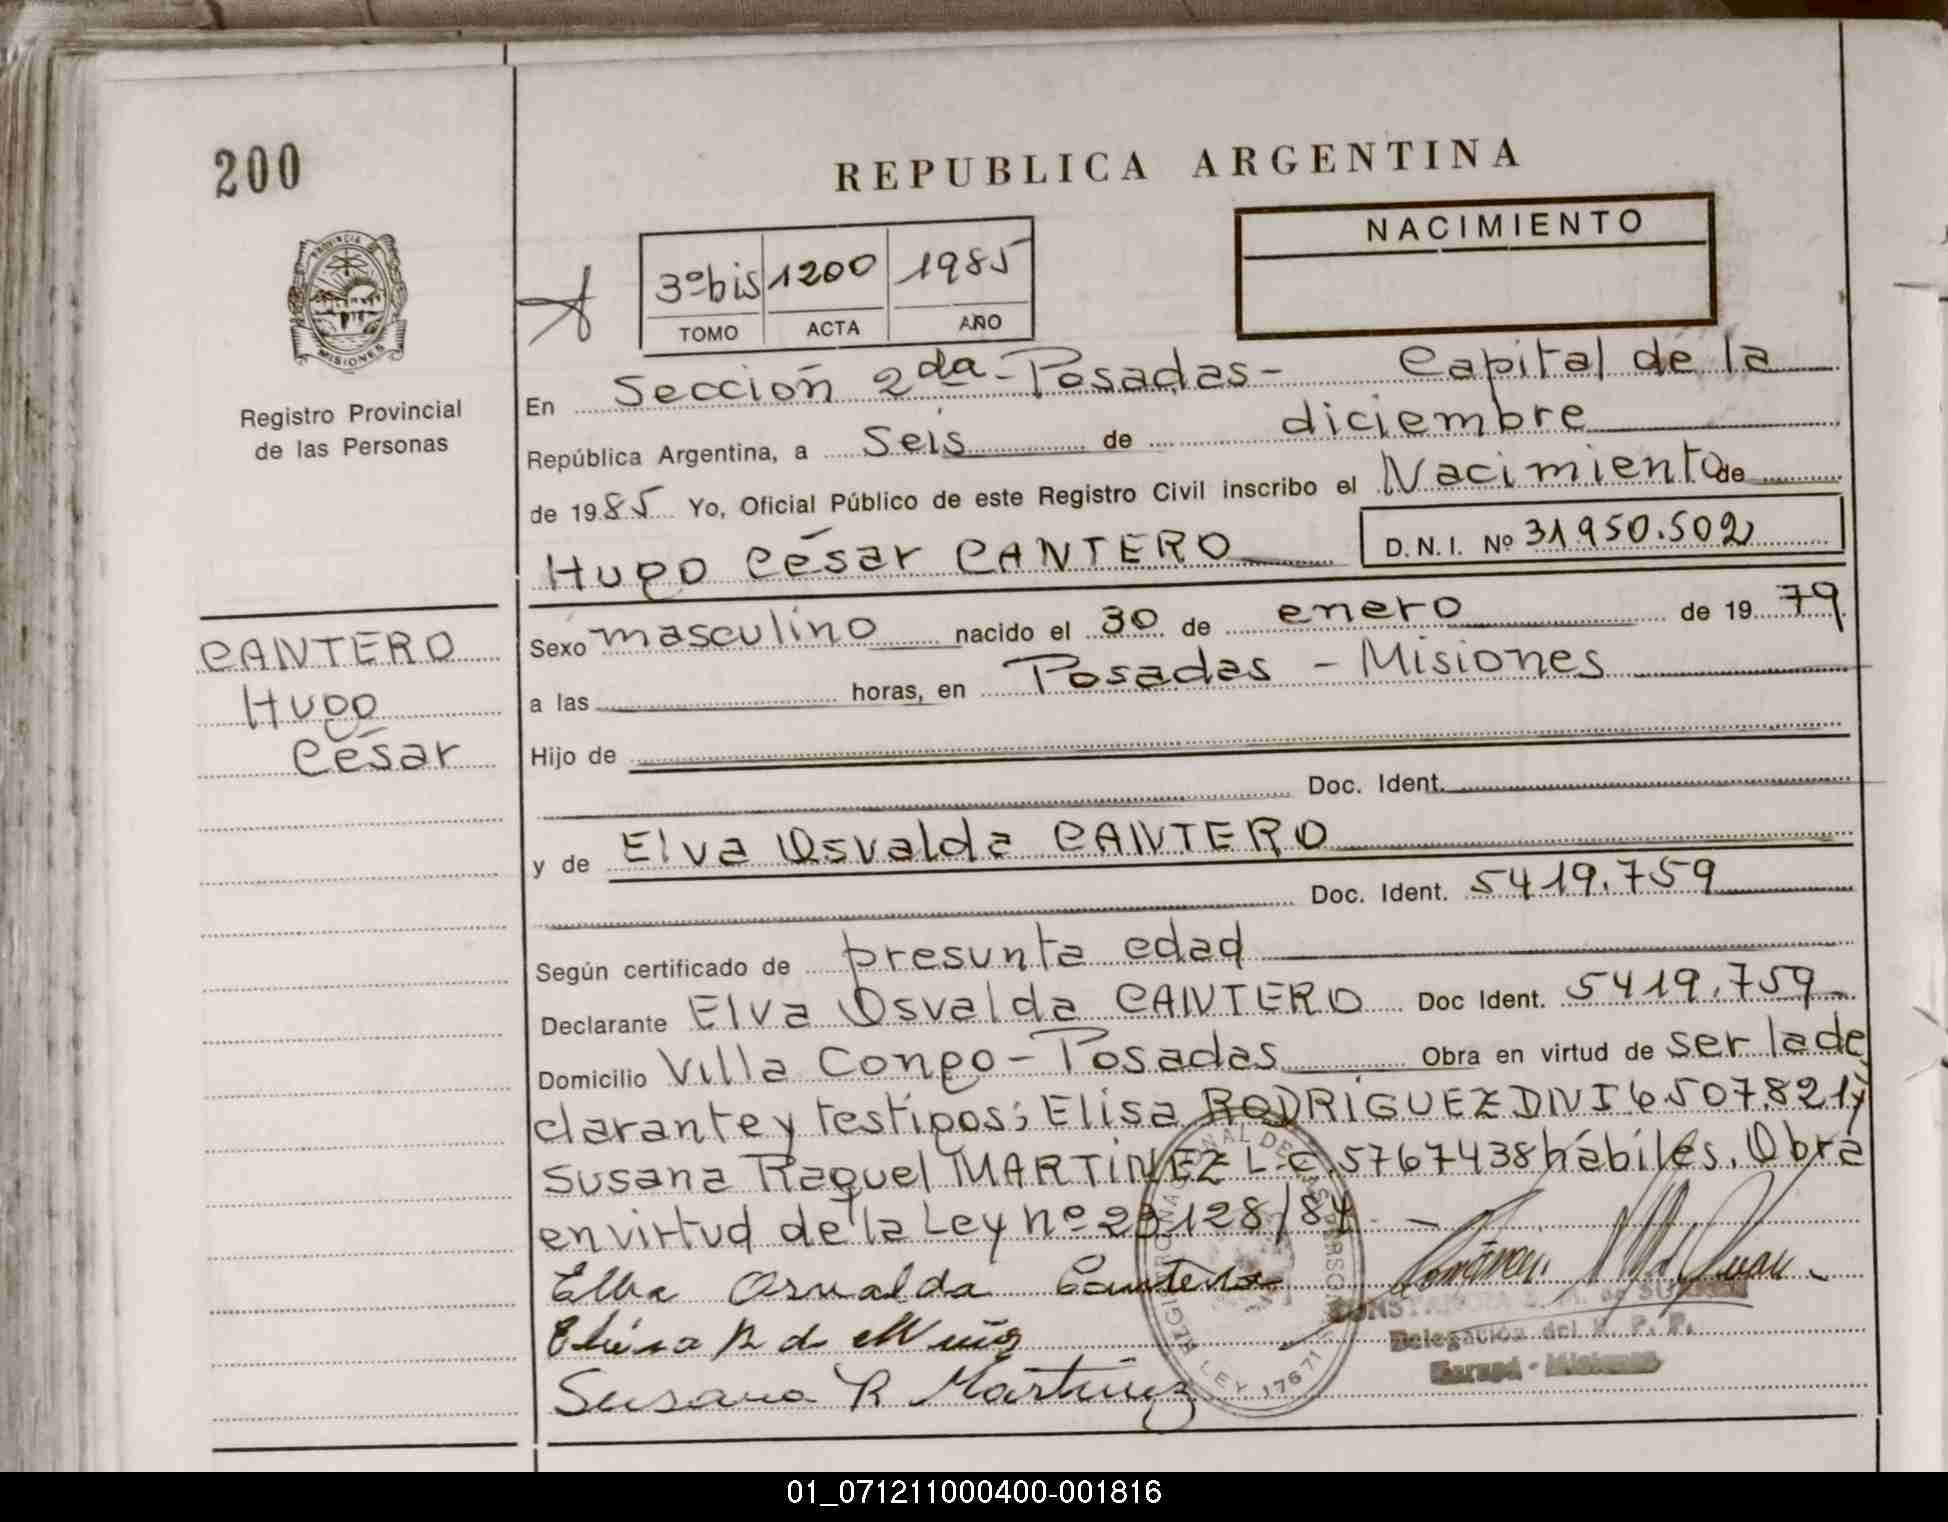 200
REPUBLICA ARGENTINA
NACIMIENTO
3º bis 1200 1985
TOMO ACTA AÑO
PROVINCIA DE
MISIONES
Registro Provincial
de las Personas
En Sección 2da - Posadas - Capital de la
República Argentina, a Seis de diciembre
de 1985 Yo, Oficial Público de este Registro Civil inscribo el Nacimiento de
Hugo César CANTERO D.N.I. Nº 31950.502
CANTERO
Hugo
César
Sexo masculino nacido el 30 de enero de 1979
a las horas, en Posadas - Misiones
Hijo de
Doc. Ident.
y de Elva Osvalda CANTERO
Doc. Ident. 5419.759
Según certificado de presunta edad
Declarante Elva Osvalda CANTERO Doc Ident. 5419.759
Domicilio Villa Congo - Posadas Obra en virtud de ser la de
clarante y testigos; Elisa RODRIGUEZ DNI 6507.821 y
Susana Raquel MARTINEZ L.C. 5767438 hábiles. Obra
en virtud de la Ley nº 23128/84
Elba Osvalda Cantero
R de
Susana R Martinez
LEY 17671
Delegación del R. P. P.
Misiones
01_071211000400-001816